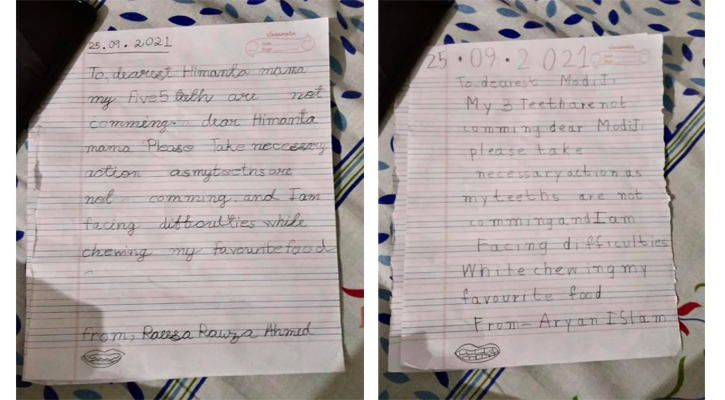 25.09.2021
classmate
To, dearest Himanta mama
my five5 teeth are not
comming. dear Himanta
mama Please Take necessary
action asmyteethsare
not comming. and Iam
facing difficulties while
chewing my favourite food
from, Raeesa Rawza Ahmed
25.09.2021
To. dearest ModiJi
My 3 Teetharenot
comming dear ModiJi
please take
necessaryaction as
my teeths are not
commingandIam
Facing difficulties
While chewingmy
favourite food
From-Aryan ISlam